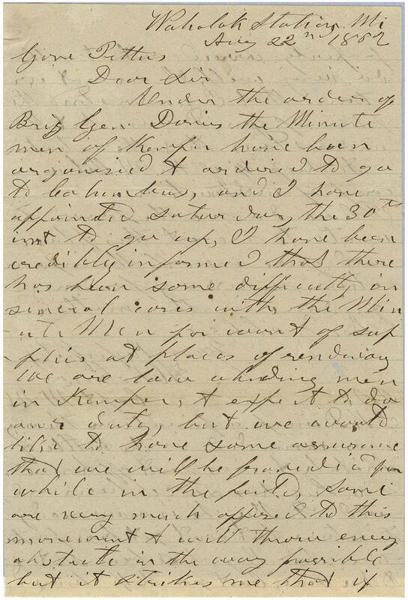 Wahalak Station, Mi
Aug 22nd 1862
Gove Pettus
Dear Sir
Under the orders of
Brig Gen Davis the Minute
men of Kemper have been
organised & ordered to go
to Columbus, and I have
appointed Saturday, the 30th
inst to go up, I have been
credibly informed that there
has been some difficulty in
several cases with the Min
ute Men for want of sup
plies at places of rendezvous
We are law abiding men
in Kemper, & expect to do
our duty, but we would
like to have some assurance
that we will be
while in the field, some
are very much opposed to this
movement & will throw every
obstacle in the way possible
but it strikes me that if